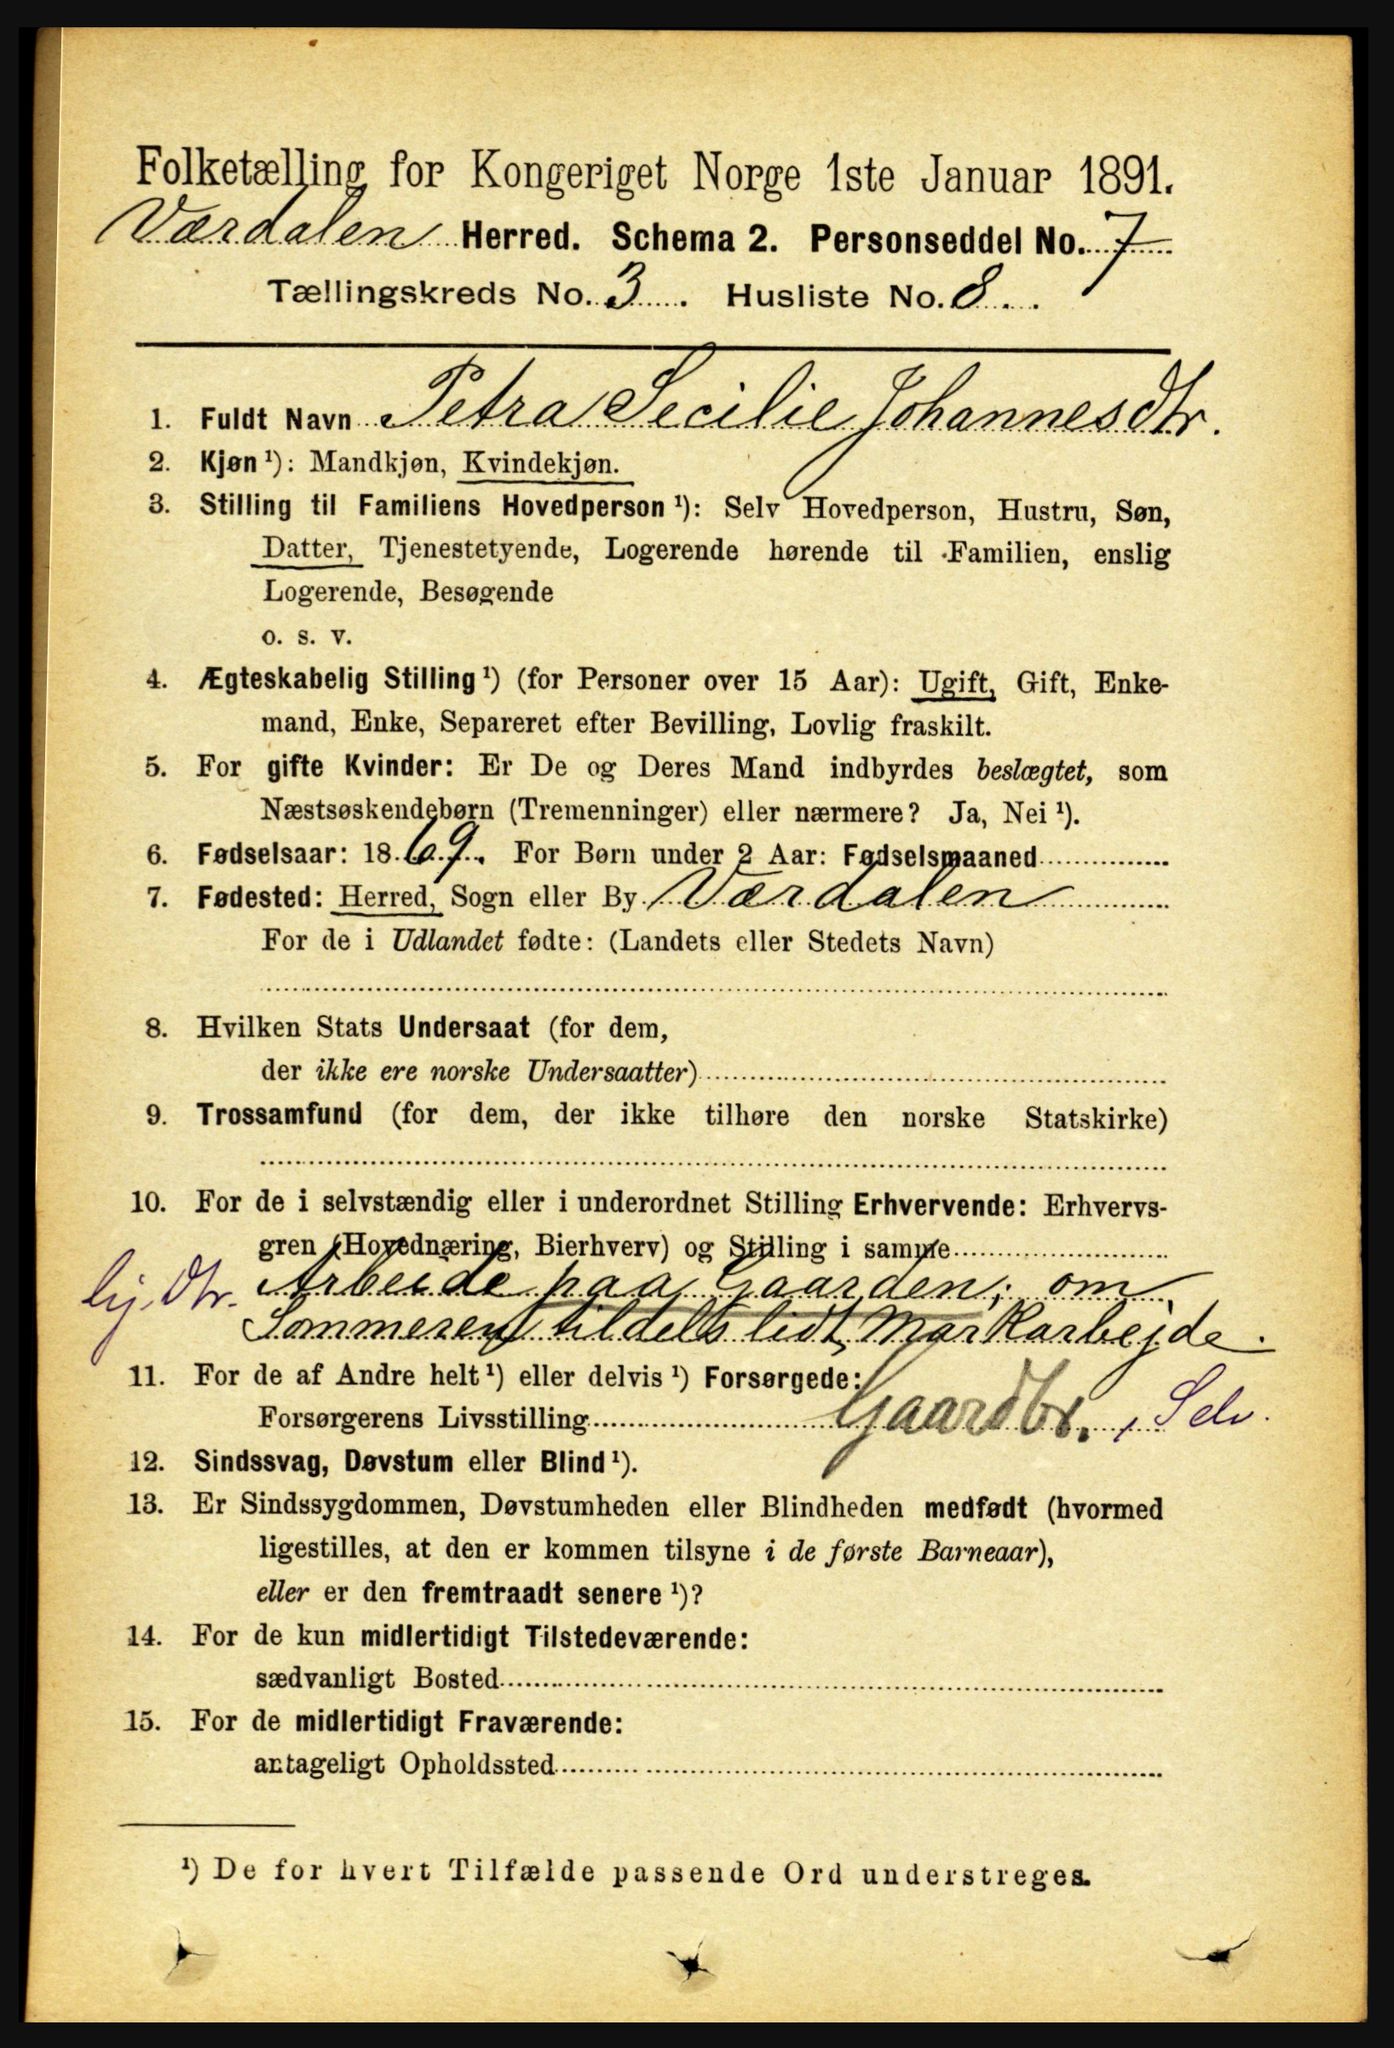 Folketælling for Kongeriget Norge 1ste Januar 1891.
Værdalen Herred. Schema 2. Personseddel No. 7
Tællingskreds No. 3. Husliste No. 8.
1. Fuldt Navn Petra Secilie Johannesdtr.
2. Kjøn ¹): Mandkjøn, Kvindekjøn.
3. Stilling til Familiens Hovedperson ¹): Selv Hovedperson, Hustru, Søn,
Datter, Tjenestetyende, Logerende hørende til Familien, enslig
Logerende, Besøgende
o. s. v.
4. Ægteskabelig Stilling ¹) (for Personer over 15 Aar): Ugift, Gift, Enke-
mand, Enke, Separeret efter Bevilling, Lovlig fraskilt.
5. For gifte Kvinder: Er De og Deres Mand indbyrdes beslægtet, som
Næstsøskendebørn (Tremenninger) eller nærmere? Ja, Nei ¹).
6. Fødselsaar: 1869. For Børn under 2 Aar: Fødselsmaaned
7. Fødested: Herred, Sogn eller By Værdalen
For de i Udlandet fødte: (Landets eller Stedets Navn)
8. Hvilken Stats Undersaat (for dem,
der ikke ere norske Undersaatter)
9. Trossamfund (for dem, der ikke tilhøre den norske Statskirke)
10. For de i selvstændig eller i underordnet Stilling Erhvervende: Erhvervs-
gren (Hovednæring, Bierhverv) og Stilling i samme
Dtr. Arbeide paa Gaarden; om
Sommeren tildels lidt Markarbejde.
11. For de af Andre helt ¹) eller delvis ¹) Forsørgede:
Forsørgerens Livsstilling Gaardbr., Selv.
12. Sindssvag, Døvstum eller Blind ¹).
13. Er Sindssygdommen, Døvstumheden eller Blindheden medfødt (hvormed
ligestilles, at den er kommen tilsyne i de første Barneaar),
eller er den fremtraadt senere ¹)?
14. For de kun midlertidigt Tilstedeværende:
sædvanligt Bosted
15. For de midlertidigt Fraværende:
antageligt Opholdssted
¹) De for hvert Tilfælde passende Ord understreges.